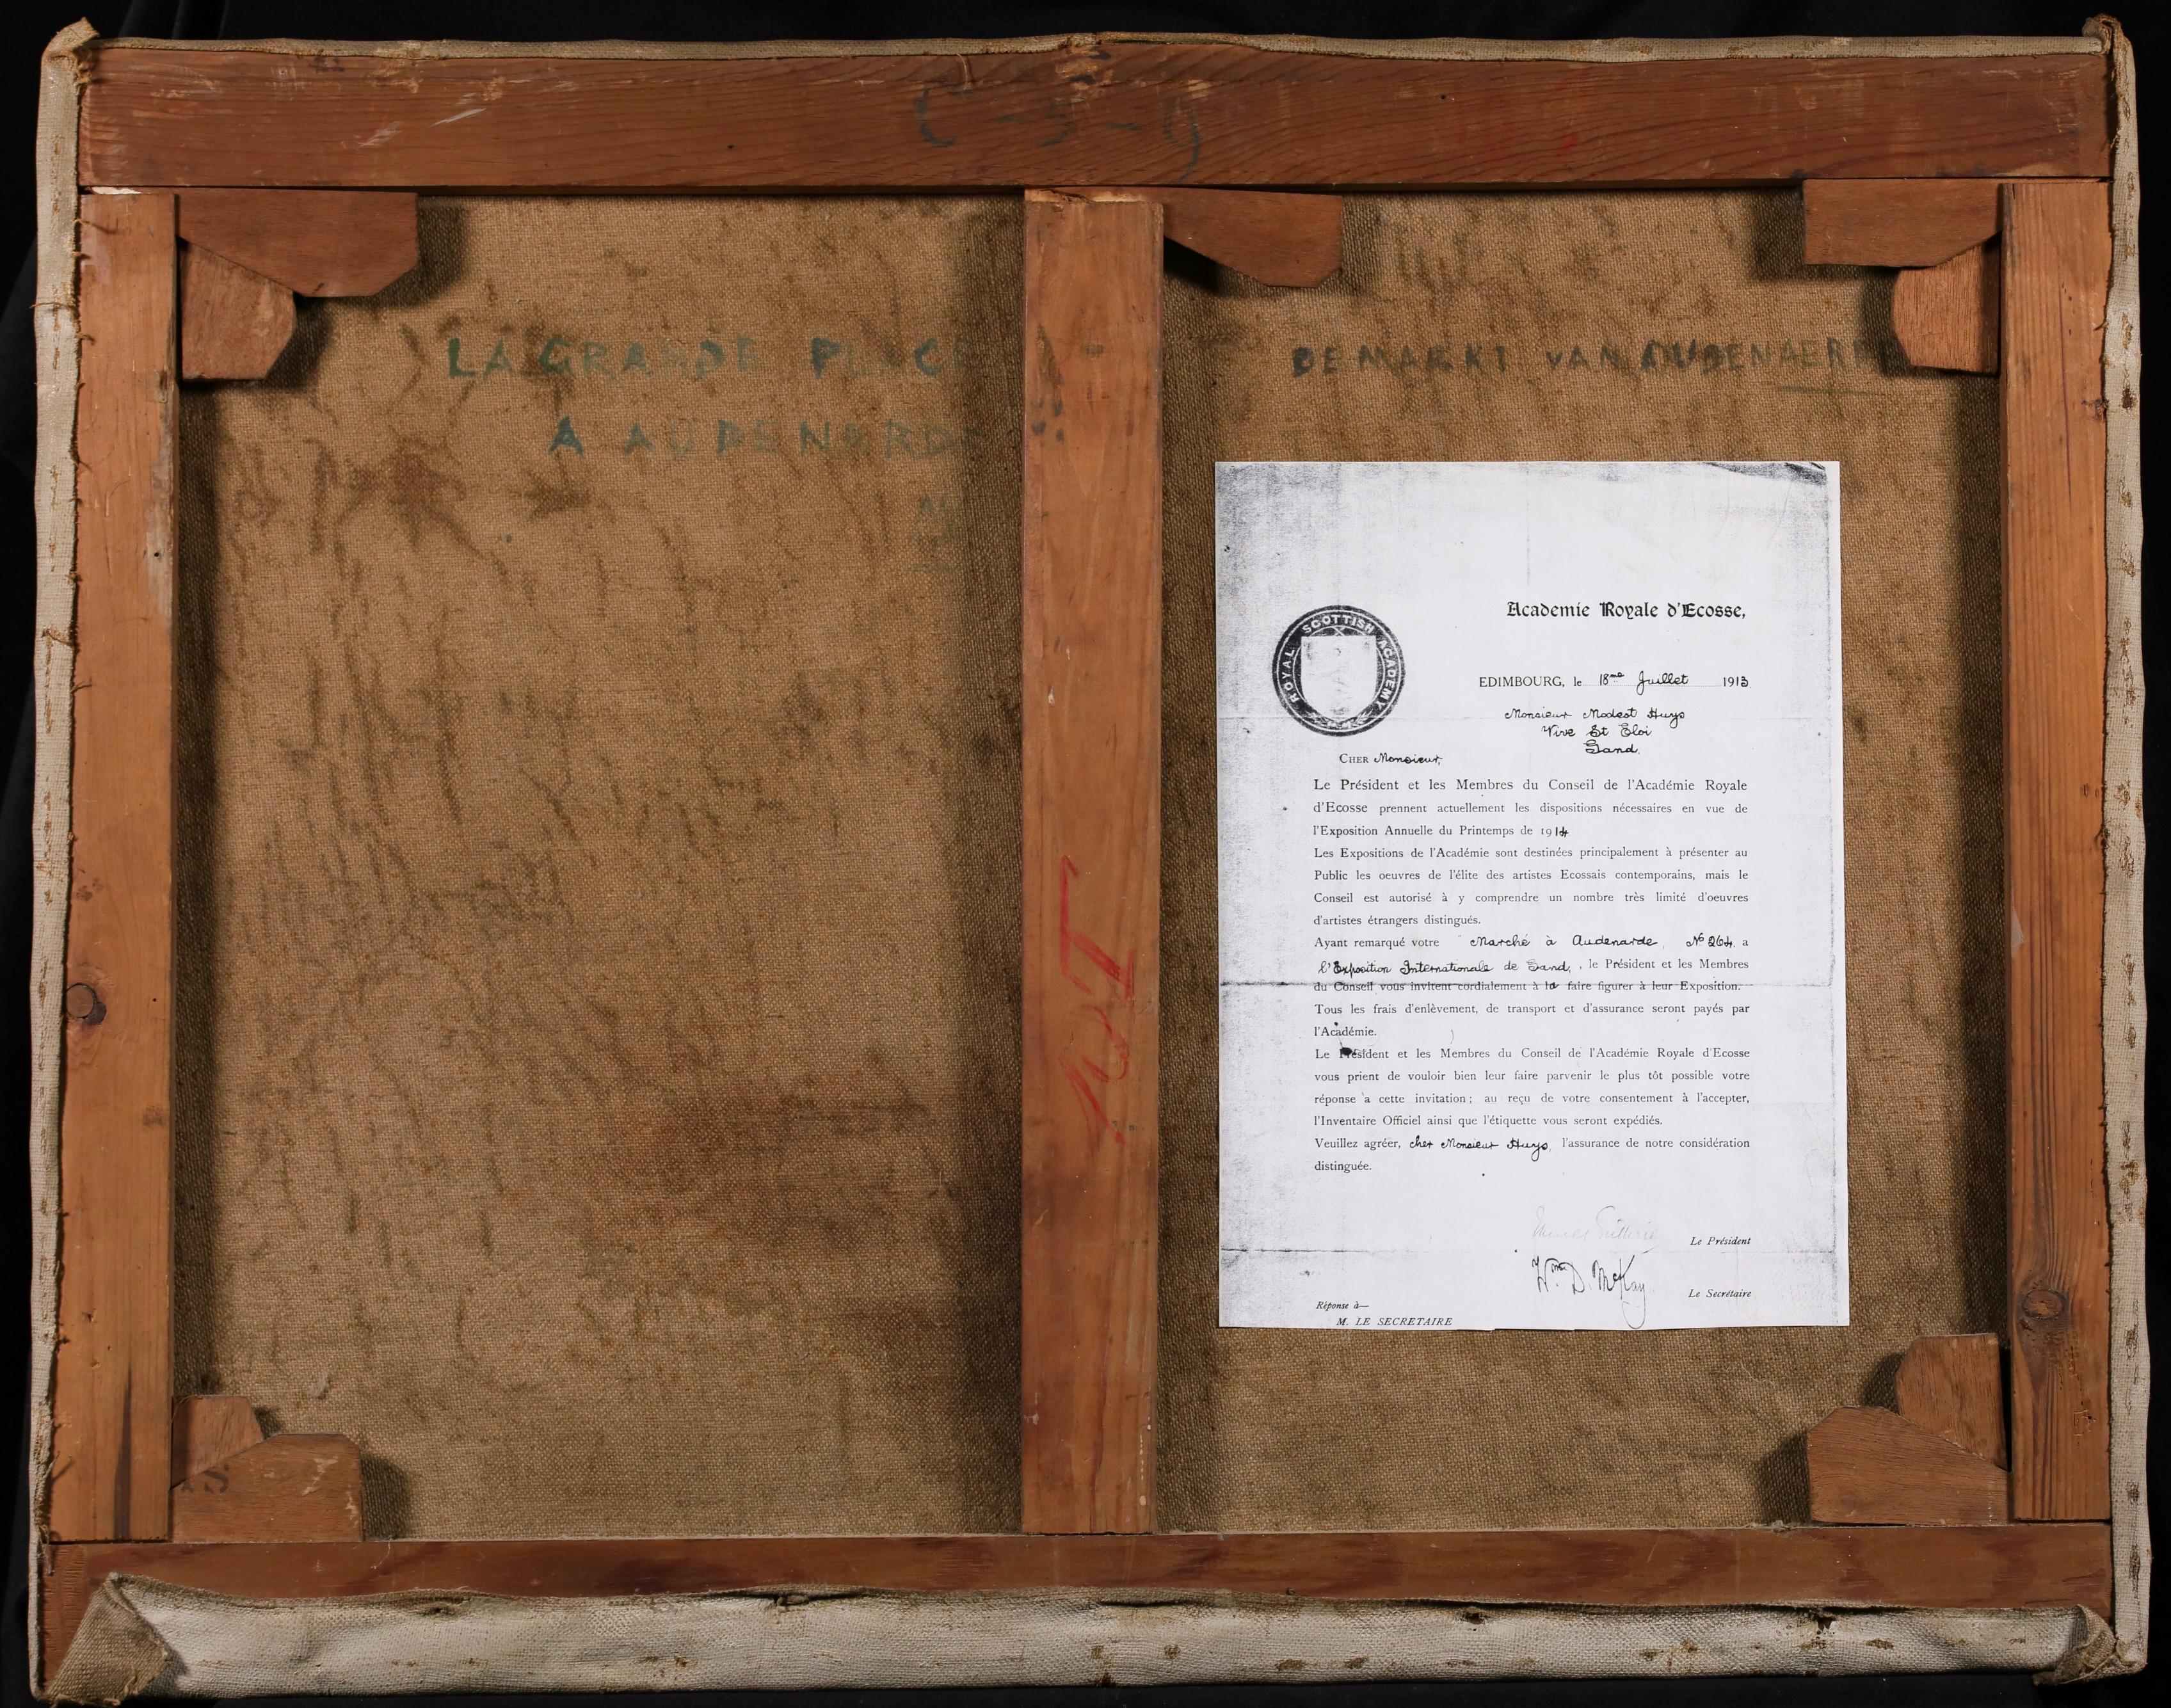 C-5-9
LA GRANDE PLACE -
A AUDENARDE
DE MARKT VAN AUDENAERDE
ROYAL SCOTTISH ACADEMY
Academie Royale d'Ecosse,
EDIMBOURG, le 18me Juillet 1913.
Monsieur Modest Huys
Vive St Eloi
Gand.
CHER Monsieur,
Le Président et les Membres du Conseil de l'Académie Royale
d'Ecosse prennent actuellement les dispositions nécessaires en vue de
l'Exposition Annuelle du Printemps de 1914
Les Expositions de l'Académie sont destinées principalement à présenter au
Public les oeuvres de l'élite des artistes Ecossais contemporains, mais le
Conseil est autorisé à y comprendre un nombre très limité d'oeuvres
d'artistes étrangers distingués.
Ayant remarqué votre Marché à Audenarde, No 264. a
l'Exposition Internationale de Gand, , le Président et les Membres
du Conseil vous invitent cordialement à la faire figurer à leur Exposition.
Tous les frais d'enlèvement, de transport et d'assurance seront payés par
l'Académie.
Le Président et les Membres du Conseil de l'Académie Royale d'Ecosse
vous prient de vouloir bien leur faire parvenir le plus tôt possible votre
réponse a cette invitation; au reçu de votre consentement à l'accepter,
l'Inventaire Officiel ainsi que l'étiquette vous seront expédiés.
Veuillez agréer, cher Monsieur Huys, l'assurance de notre considération
distinguée.
James Guthrie Le Président
Wm. D. McKay Le Secrétaire
Réponse à—
M. LE SECRETAIRE